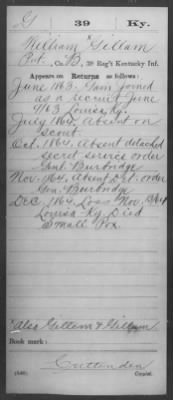 G | 39 | Ky.
William Gillam
Pvt. Co. B, 39 Reg't Kentucky Inf.
Appears on Returns as follows:
June 1863. Gain joined
as a recruit June
/63 Louisa, Ky.
July 1864 Absent on
scout.
Oct. 1864. Absent detached
secret service order
Genl. Burbridge
Nov. 1864. Absent Det. order
Gen. Burbridge
Dec. 1864 Loss Nov.
Louisa Ky. Died
Small Pox.
*Also Gillem & Gillum
Book mark:
Crittenden
(546) Copyist.